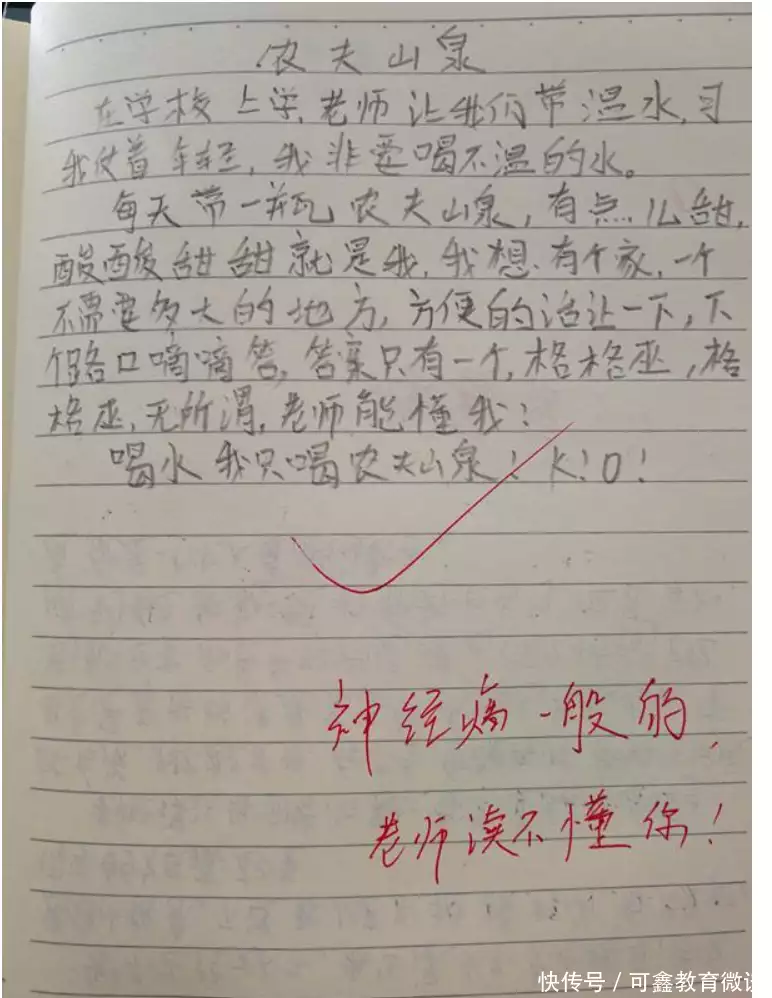 农夫山泉
在学校上学,老师让我们带温水,可
我仗着年轻,我非要喝不温的水。
每天带一瓶农夫山泉,有点儿甜,
酸酸甜甜就是我,我想有个家,一个
不需要多大的地方,方便的话让一下,下
个路口嘀嘀答,答案只有一个,格格巫,格
格巫,无所谓,老师能懂我!
喝水我只喝农夫山泉!K!O!
神经病一般的,
老师读不懂你!
快传号/可鑫教育微课